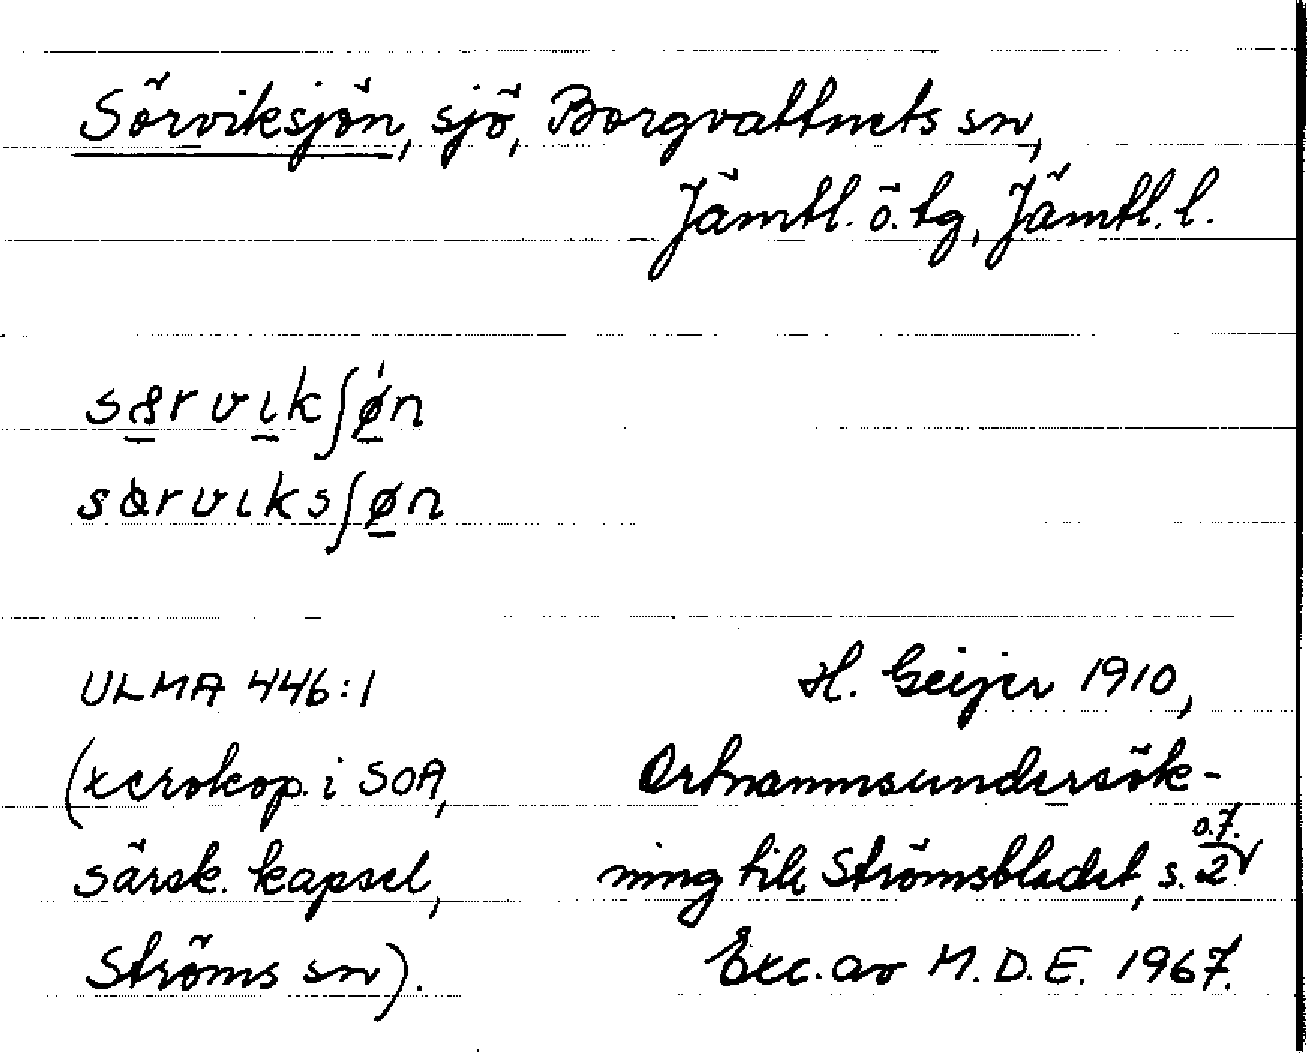 Sörviksjön, sjö, Borgvattnets sn,
Jämtl. ö. tg, Jämtl. l.
ʃø̲n
ʃø̲n
ULMA 446:1
(xerokop. i SOA,
särsk. kapsel,
Ströms sn).
H. Geijer 1910,
Ortnamnsundersök-
ning till Strömsbladet, s. 2 o. 7.
Exc. av M. D. E. 1967.